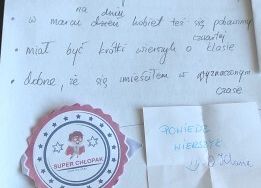 na dniu
w marcu dzień kobiet też się
czwartej
• miał być krótki wierszyk o klasie
• dobrze, że się zmieściłem w wyznaczonym
czasie
POWIEDZ
WIERSZYK
o klasie
SUPER CHŁOPAK